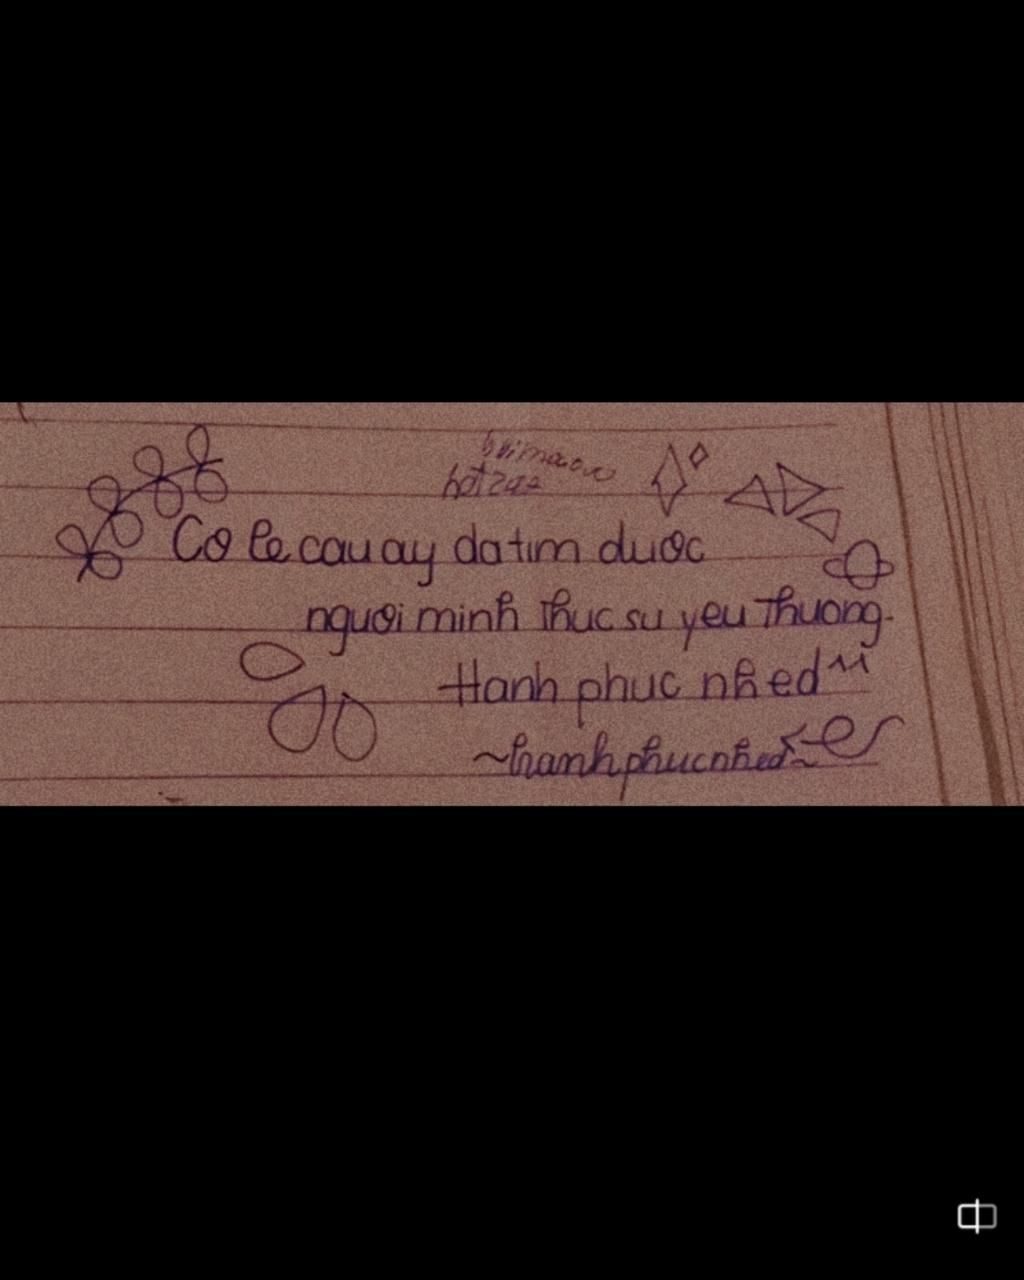 Co le cau ay da tim duoc
nguoi minh thuc su yeu thuong.
Hanh phuc nhed
~hanh phuc nhed~